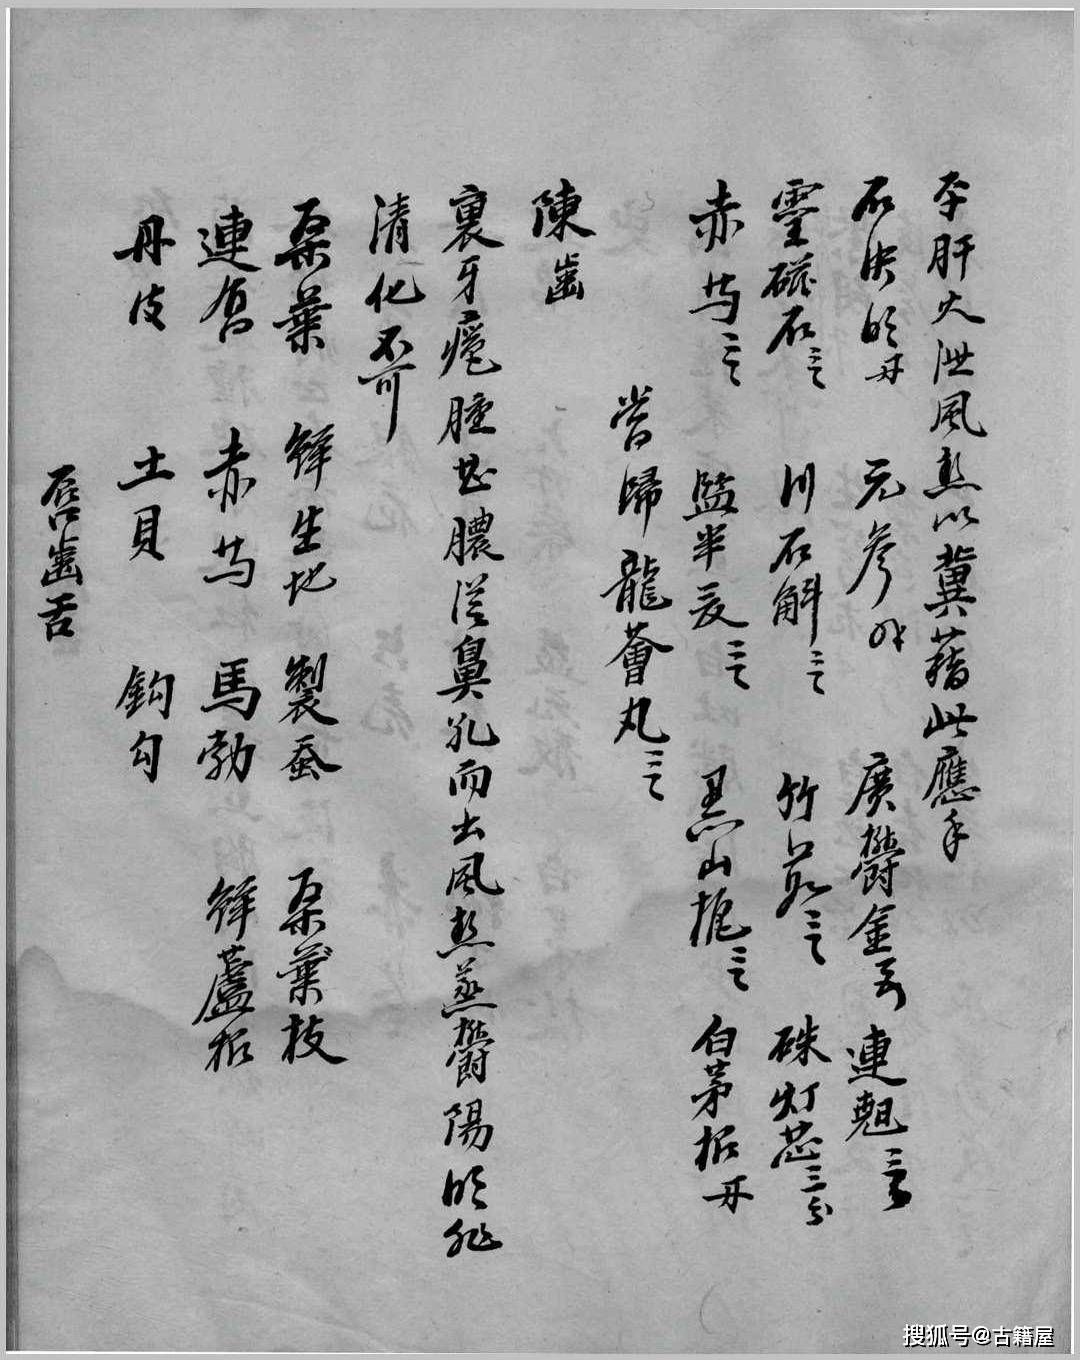 平肝火泄風熱以冀藉此應手
石决明 元參 廣鬱金 連翹
靈磁石三 川石斛三 竹茹三 硃灯芯三分
赤芍三 塩半夏三 黑山栀三 白茅根
當歸龍薈丸三
陳 齒
裏牙瘪腫甚膿從鼻孔而出風熱蒸鬱陽明非
清化不可
桑葉 鲜生地 製蚕 桑葉枝
連翹 赤芍 馬勃 鲜蘆根
丹皮 土貝 鈎勾
唇齒舌
搜狐号@古籍屋